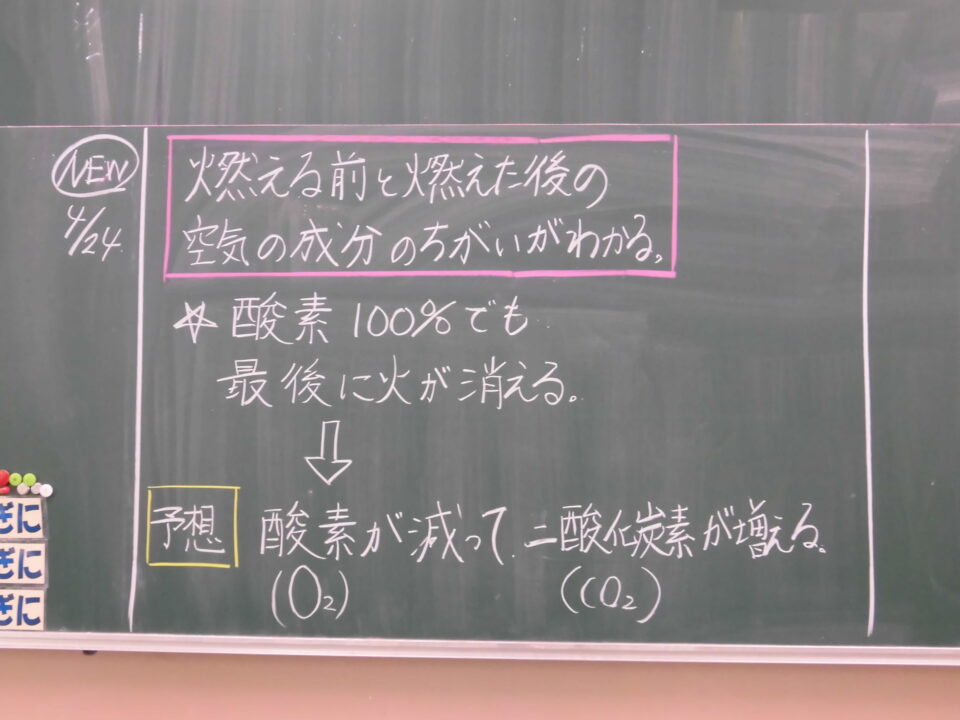 NEW
4/24
燃える前と燃えた後の
空気の成分のちがいがわかる。
☆ 酸素100%でも
最後に火が消える。
⇩
予想 酸素が減って、二酸化炭素が増える。
(O₂) (CO₂)
ぎに
ぎに
ぎに